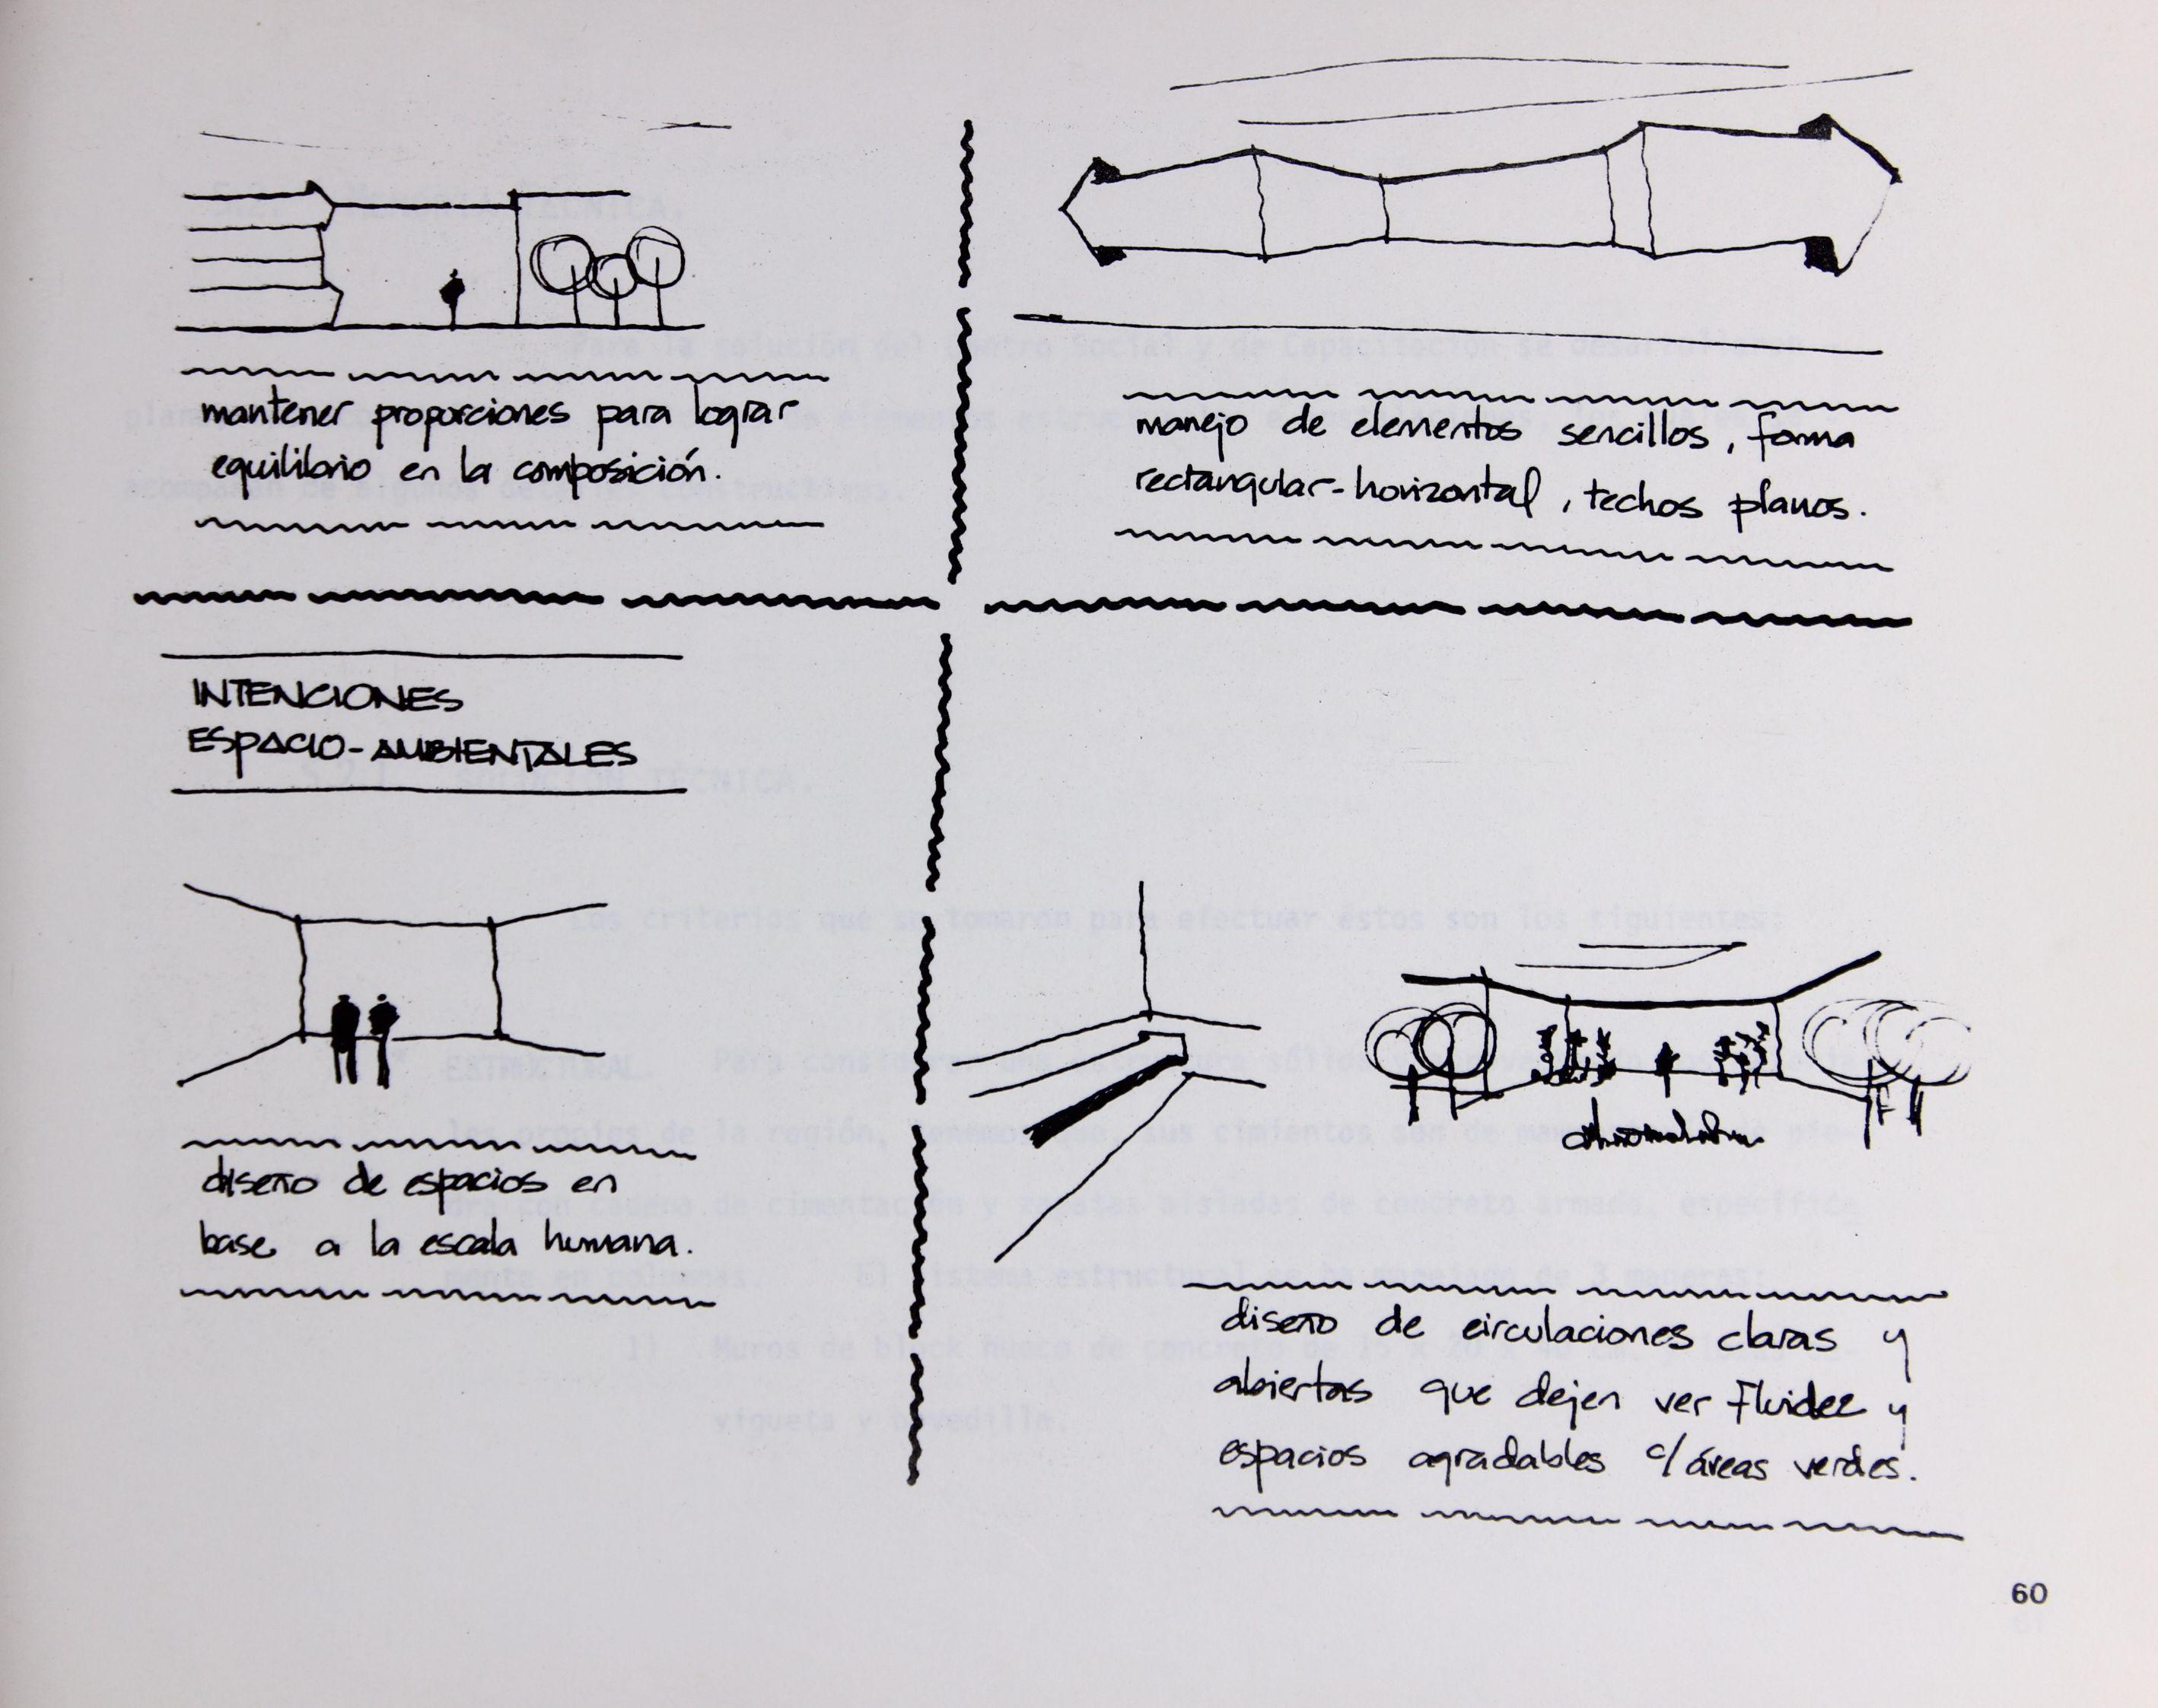 mantener proporciones para lograr
equilibrio en la composición.
manejo de elementos sencillos, forma
rectangular-horizontal, techos planos.
INTENCIONES
ESPACIO-AMBIENTALES
diseño de espacios en
base a la escala humana.
diseño de circulaciones claras y
abiertas que dejen ver fluidez y
espacios agradables c/áreas verdes.
60